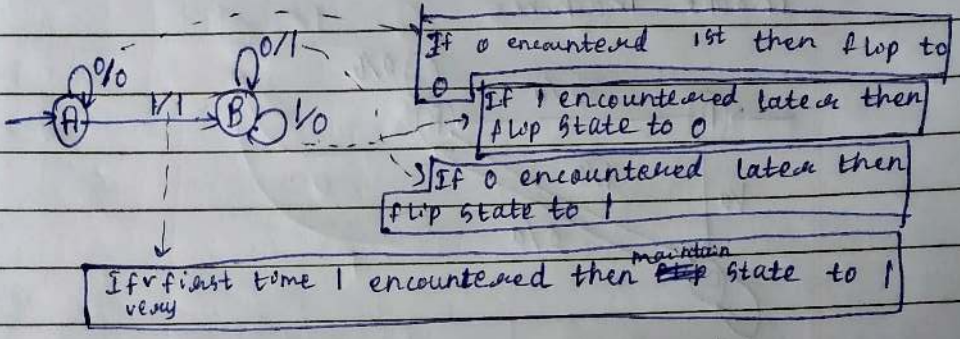 0/0
A
1/1
0/1
B
1/0
If 0 encounterd 1st then flop to
0
If 1 encountered later then
flop state to 0
If 0 encountered later then
flip state to 1
If very first time 1 encountered then maintain state to 1